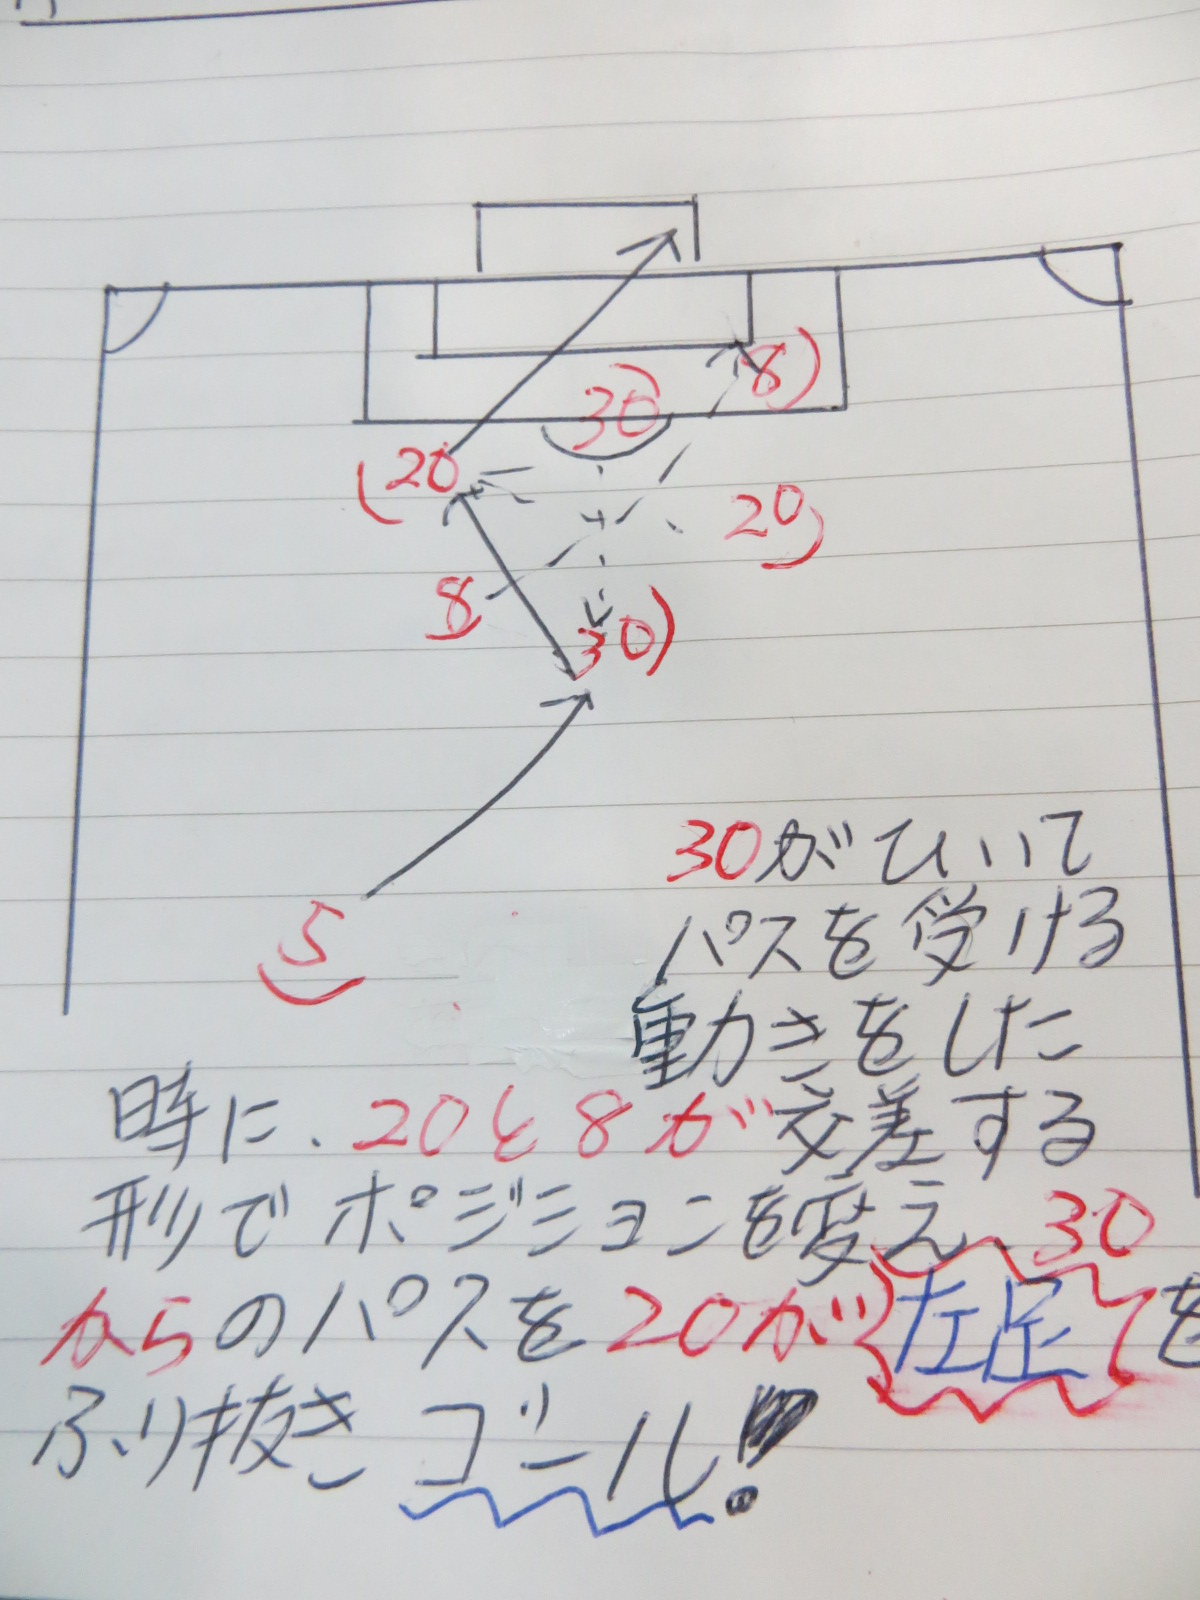 30
8
20
20
8
30
5
30がひいて
パスを受ける
動きをした
時に、20と8が交差する
形でポジションを変え、30
からのパスを20が左足を
ふり抜きゴール!